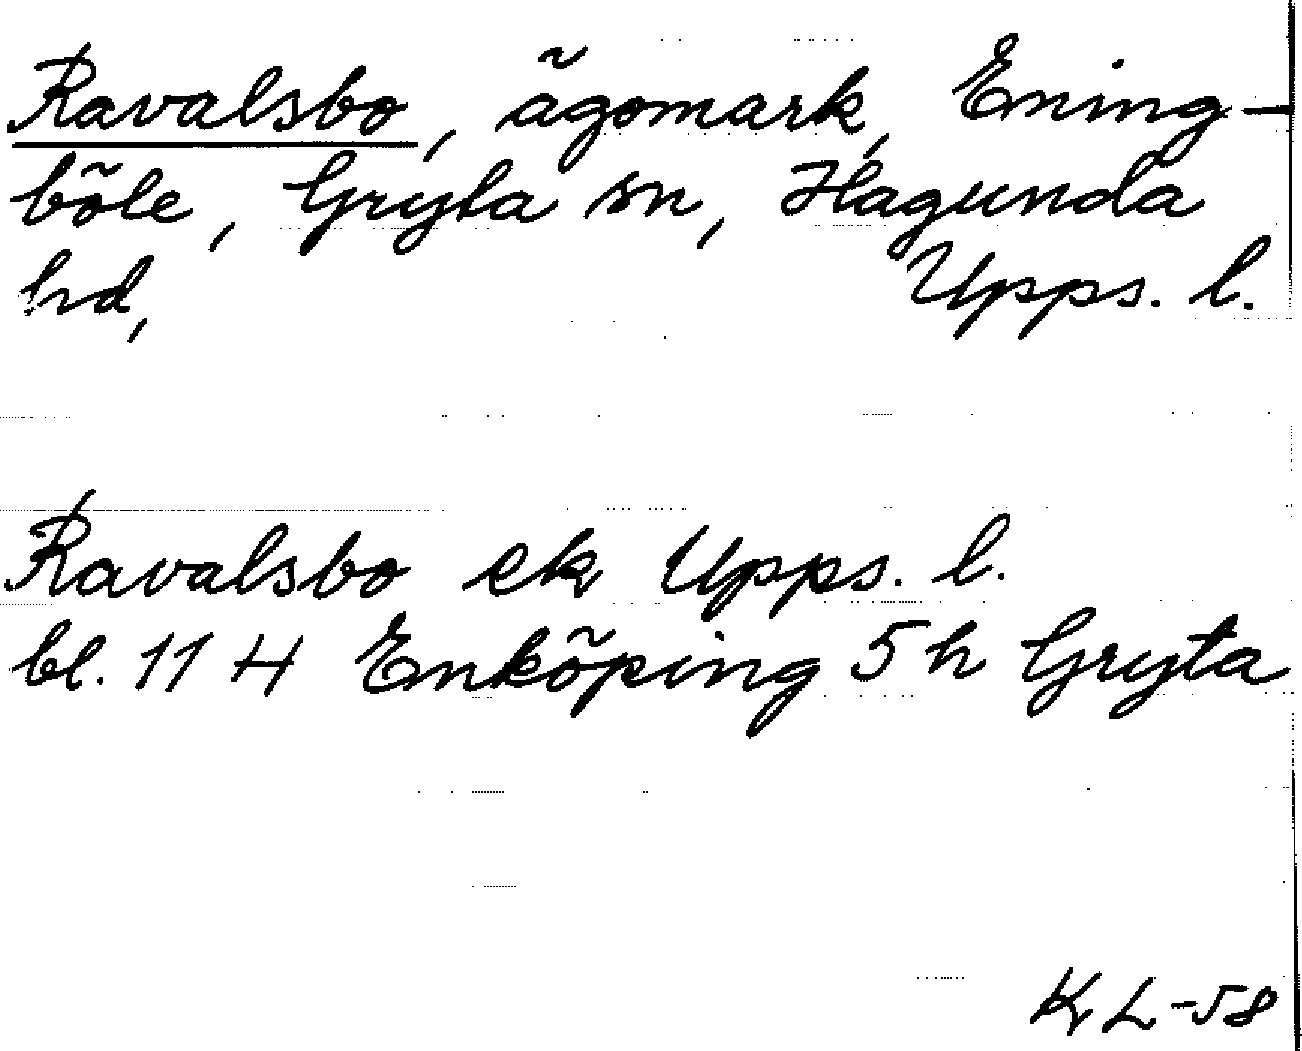 Ravalsbo, ägomark, Ening-
böle, Gryta sn, Hagunda
hd, Upps. l.
Ravalsbo ek Upps. l.
bl. 11 H Enköping 5 h Gryta
KL-58